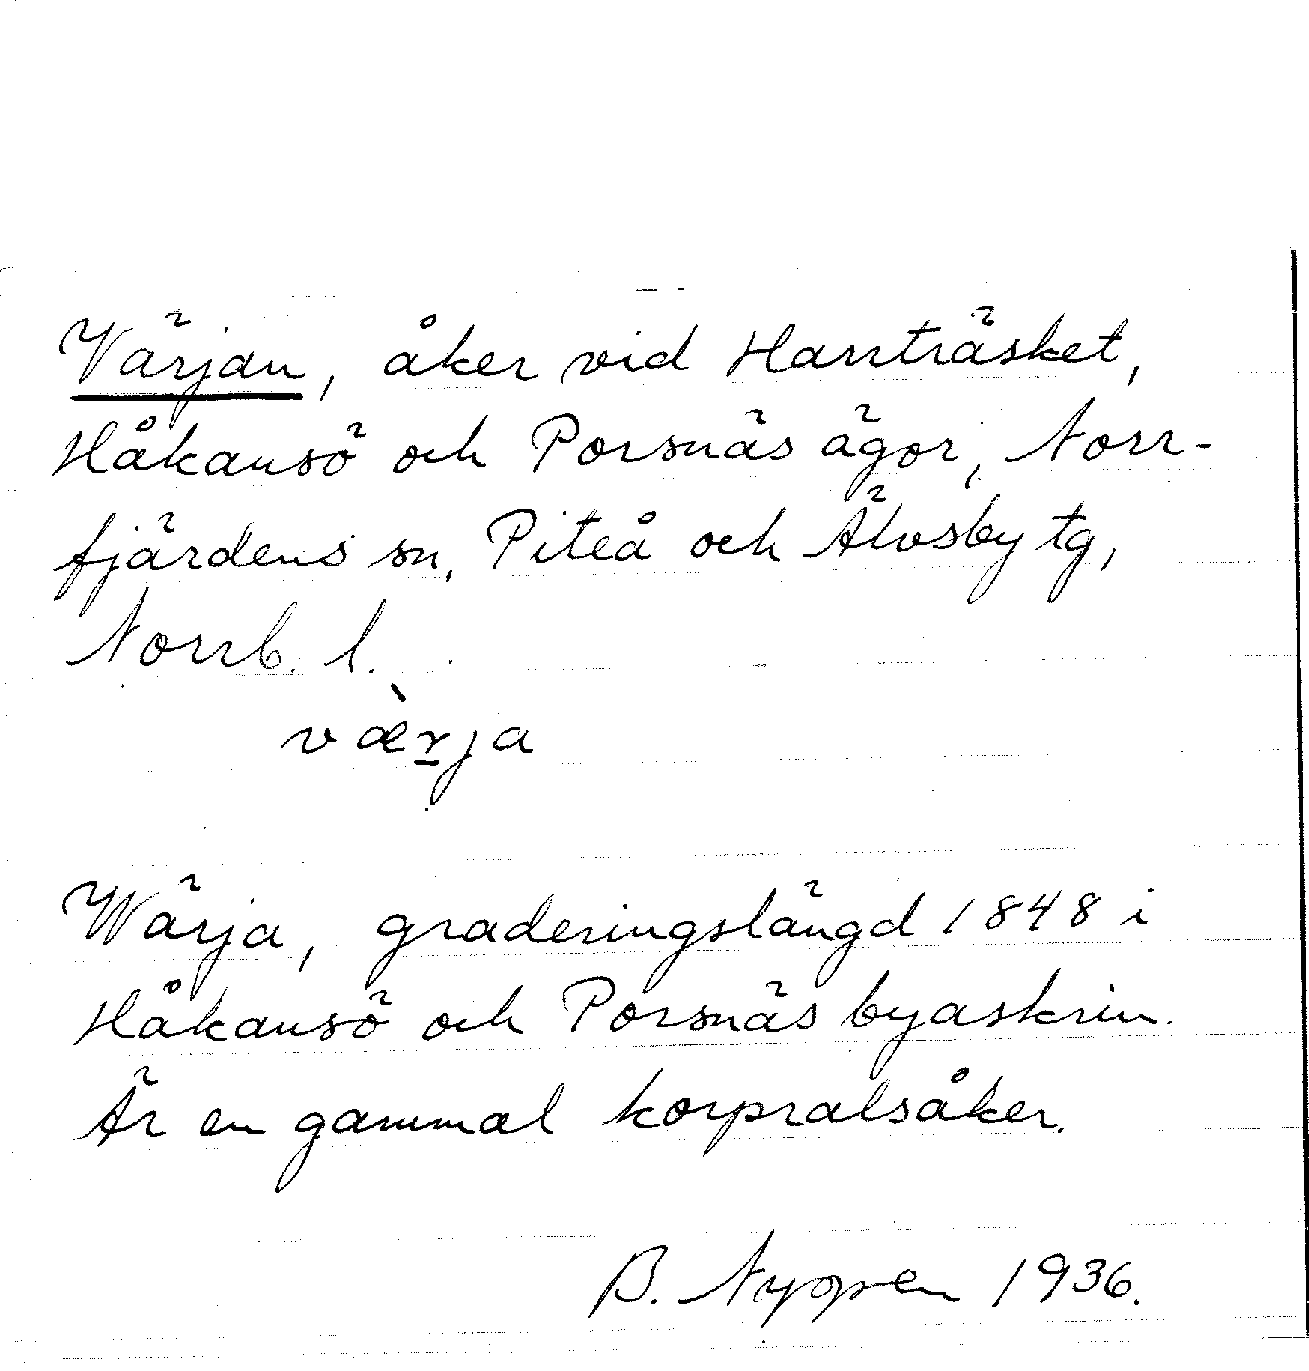 Värjan, åker vid Harrträsket,
Håkansö och Porsnäs ägor, Norr-
fjärdens sn, Piteå och Älvsby tg,
Norrb. l.
væ̀r̲ja
Wärja, graderingslängd 1848 i
Håkansö och Porsnäs byaskrin.
Är en gammal korpralsåker.
B. 1936.